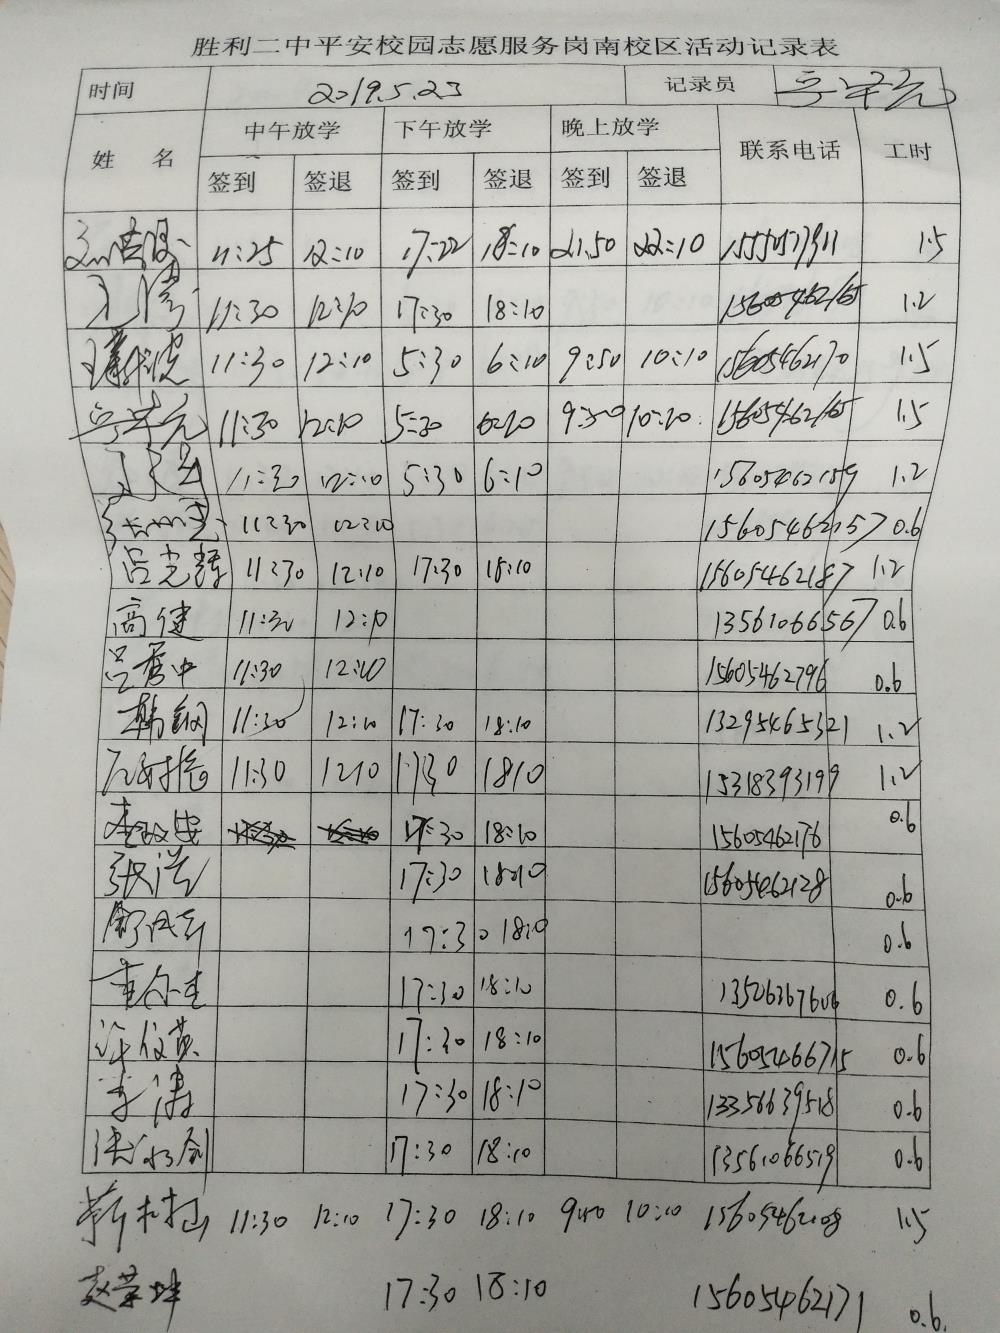 胜利二中平安校园志愿服务岗南校区活动记录表
时间 2019.5.23 记录员
姓 名 中午放学 下午放学 晚上放学 联系电话 工时
签到 签退 签到 签退 签到 签退
11:25 12:10 17:22 18:10 21:50 22:10 1.5
11:30 12:10 17:30 18:10 15605462165 1.2
11:30 12:10 5:30 6:10 9:50 10:10 15605462170 1.5
11:30 12:10 5:30 6:10 9:50 10:10 15605462165 1.5
11:30 12:10 5:30 6:10 15605462159 1.2
11:30 12:10 15605462157 0.6
吕光辉 11:30 12:10 17:30 18:10 15605462187 1.2
高健 11:30 12:10 13561066567 0.6
11:30 12:10 15605462796 0.6
韩钢 11:30 12:10 17:30 18:10 13295465321 1.2
11:30 1210 17:30 1810 15318393199 1.2
17:30 18:10 15605462176 0.6
张洪 17:30 18:10 15605462128 0.6
17:30 18:10 0.6
17:30 18:10 0.6
17:30 18:10 15605466715 0.6
李涛 17:30 18:10 13356639518 0.6
17:30 18:10 13561066519 0.6
11:30 12:10 17:30 18:10 9:50 10:10 15605462108 1.5
赵荣坤 17:30 18:10 15605462171 0.6.